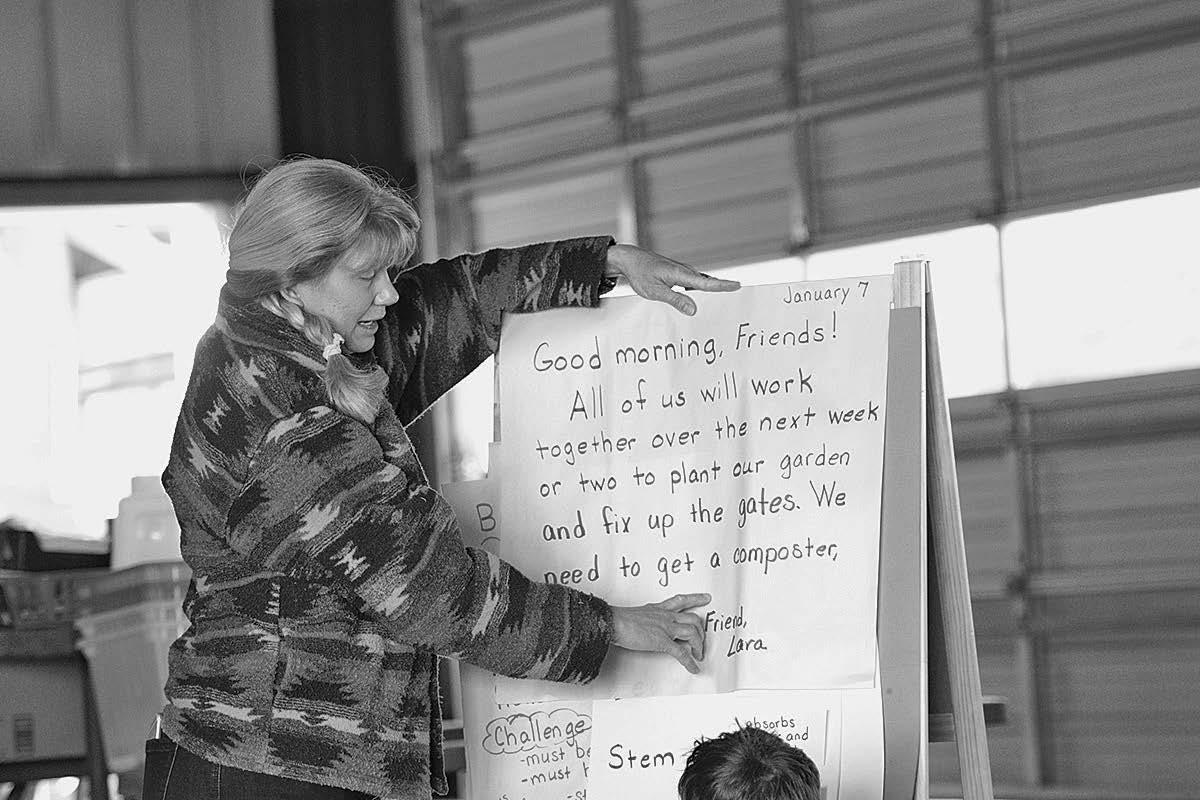 January 7
Good morning, Friends!
All of us will work
together over the next week
or two to plant our garden
and fix up the gates. We
need to get a composter,
Friend,
Lara
B
Challenge
-must be
-must
Stem
absorbs
and